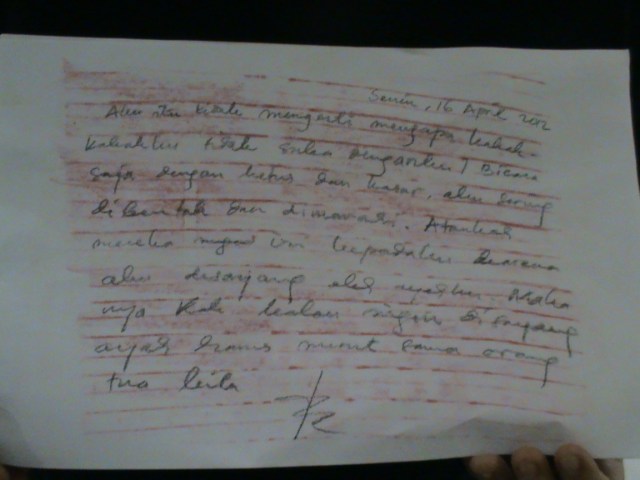 Senin, 16 April 2012
Aku itu tidak mengerti mengapa kakak-
kakakku tidak suka denganku! Bicara
saja dengan ketus dan kasar, aku sering
dibentak dan dimarahi. Ataukah
mereka iri kepadaku karena
aku disayang oleh ayahku. Maka
nya Kak kalau ingin disayang
ayah harus nurut sama orang
tua kita